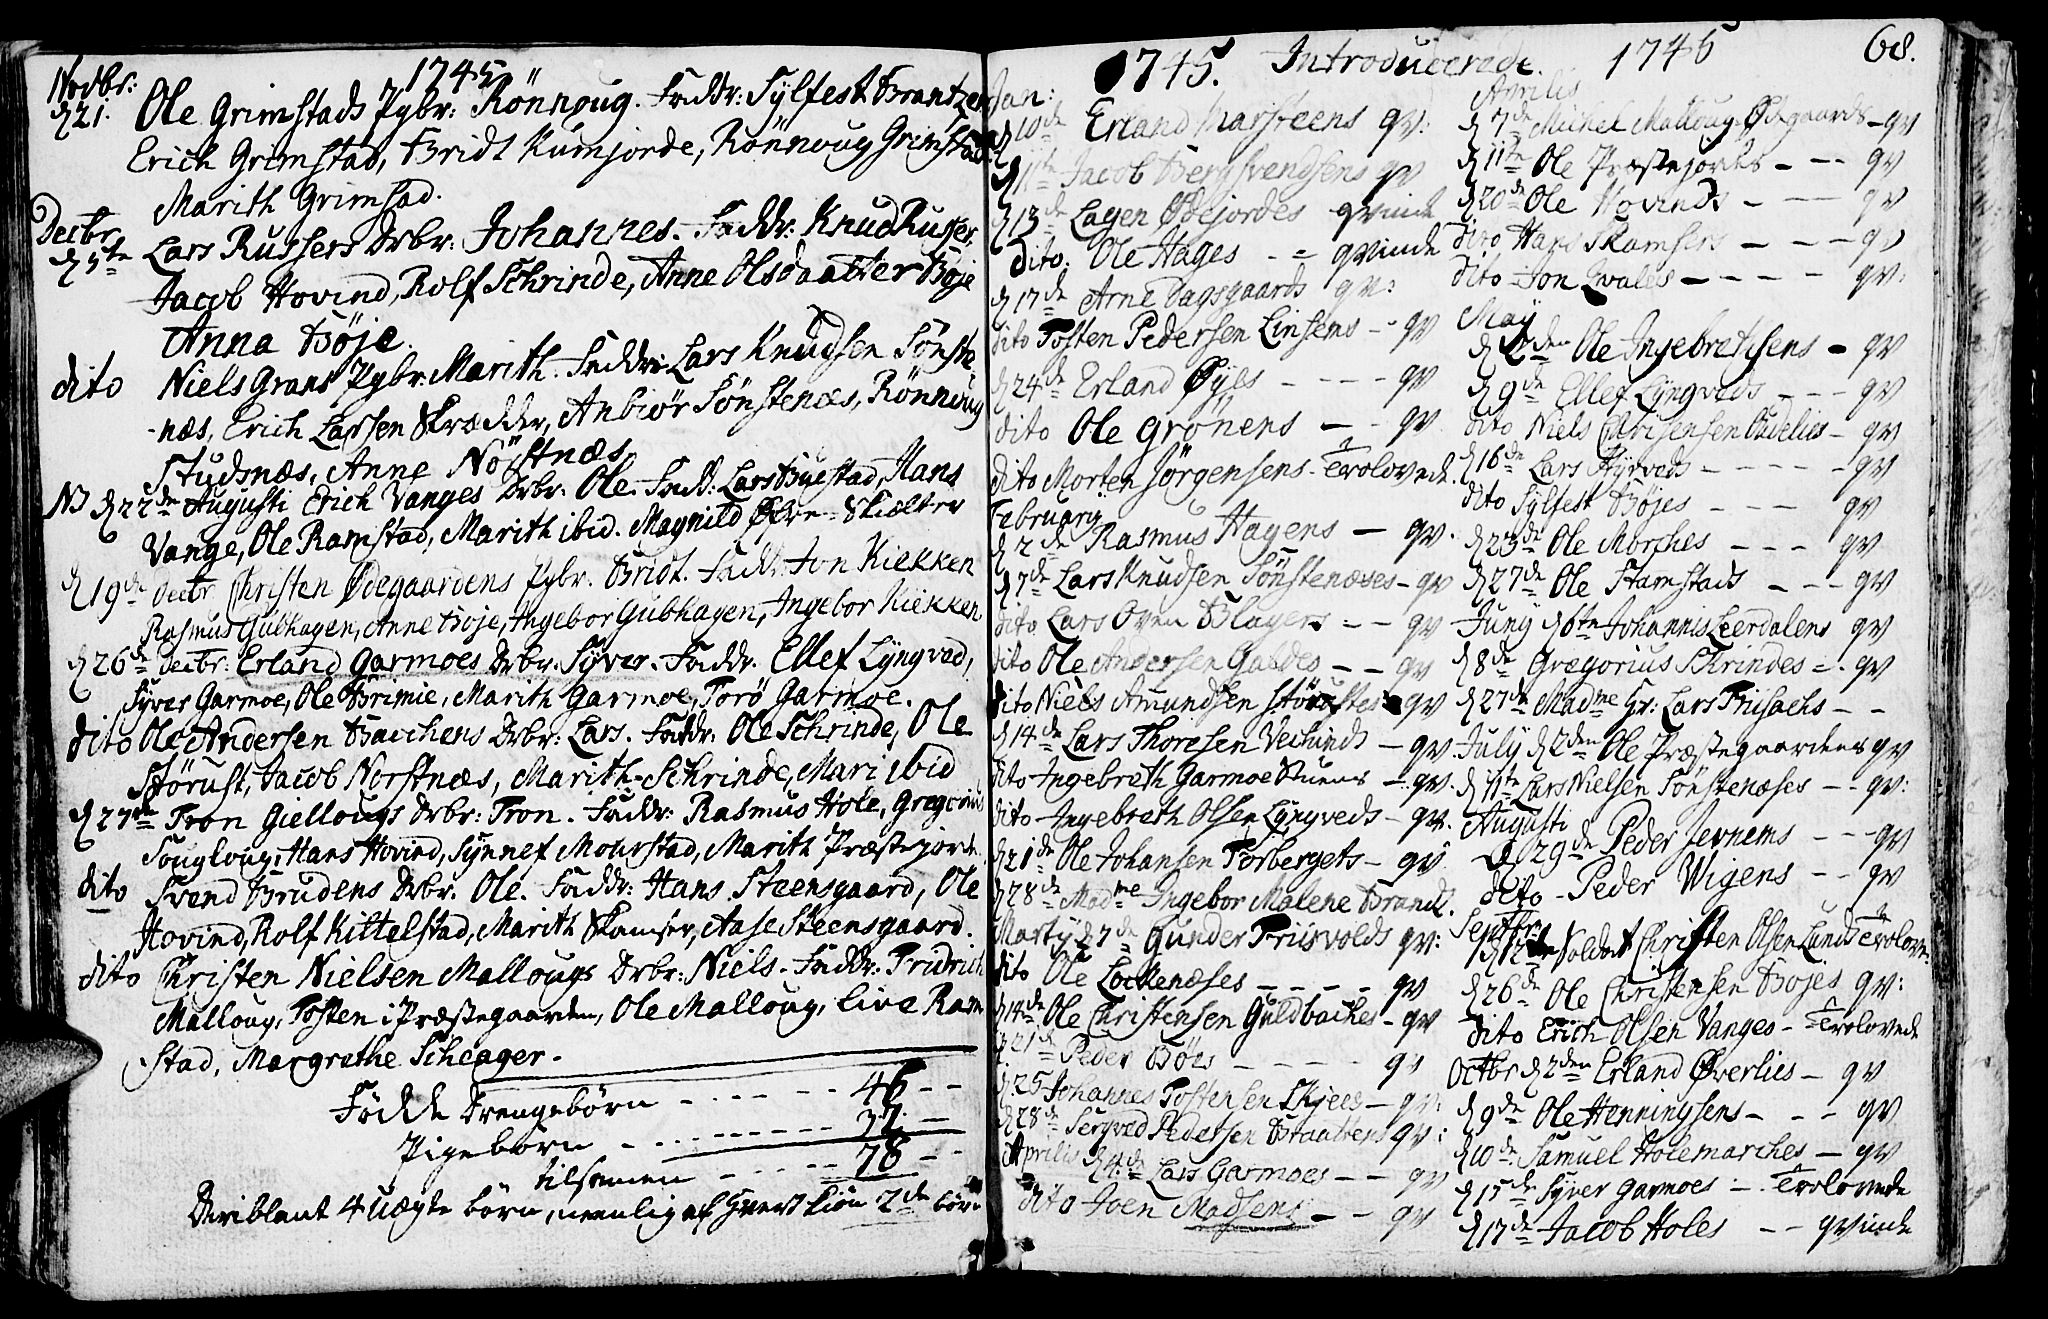 1745
Novbr:
d 21. Ole Grimstads Pgbr: Rönnoug. Faddr: Sylfest Brantzer
Erich Grimstad, Bridt Kumjorde, Rönnoug Grimstad
Marith Grimstad.
Decbr
d 5te Lars Russers Drbr: Johannes. Faddr: Knud Russer,
Jacob Hovind, Rolf Schrinde, Anne Olsdaatter Böje
Anna Böje.
dito Niels Grans Pgbr. Marith. Faddr: Lars Knudsen Sönste
-næs, Erich Larsen Skrædder, Anbiör Sönstenæs, Rönnoug
Studsnæs, Anne Nörstnæs.
NB d 22de Augusti Erich Vanges Drbr: Ole. Fadd: Lars Buestad, Hans
Vange, Ole Ramstad, Marith ibid. Magnild Øfre-Skielter
d 19de Decbr Christen Ødegaardens Pgbr. Bridt. Faddr: Jon Kiekken
Rasmus Gubhagen, Anne Böje, Ingebor Gubhagen, Ingebor Kiekken
d 26de Decbr: Erland Garmoes Drbr. Syver. Faddr. Ellef Lyngved,
Syver Garmoe, Ole Brimie, Marith Garmoe, Torö Garmoe.
dito Ole Andersen Bacchens Drbr: Lars. Faddr: Ole Schrinde, Ole
Störust, Jacob Norstnæs, Marith Schrinde, Mari ibid
d 27de Tron Giellougs Drbr: Tron. Faddr: Rasmus Hole, Gregorius
Sougloug, Hans Hovind, Synnef Mohrstad, Marith Præstejorde
dito Svend Brudens Drbr. Ole. Faddr: Hans Steensgaard, Ole
Hovind, Rolf Kittelstad, Marith Skamser, Aase Steensgaard.
dito Christen Nielsen Mallougs Drbr: Niels. Faddr: Fridrich
Malloug, Tosten i Præstegaarden, Ole Malloug, Live Ram
stad, Margrethe Scheager.
Födde Drengebörn - - - - 46 - -
Pigebörn - - - - - - 32 - -
tilsamen - - - - - 78 - -
Deriblant 4 uægte börn, nemlig af hvert kiön 2de börn
1745. Introducerede. 1745 68.
Jan:
d 10de Erland Marsteens qv:
d 11te Jacob Bergsvendsens qv
d 13de Lagen Ødejordes qvinde
dito. Ole Hages - - qvinde
d 17de Arne Dagsgaards qv:
dito Tosten Pedersen Linsens - - qv
d 24de Erland Øyes - - - - qv
dito Ole Grönens - - qv
dito Morten Jörgensens - Trolovede.
Februarij
d 2de Rasmus Hagens - qv.
d 7de Lars Knudsen Sönstenæses - qv
dito Lars Blagers - - qv
dito Ole Andersen Galdes - - qv
dito Niels Amundsen qv
d 14de Lars Thoresen Veslunds - qv.
dito Ingebreth Garmoe Stuens - qv.
dito Ingebreth Olsen Lyngveds - qv.
d 21de Ole Johansen Torbergets - qv.
d 28de Madme Ingebor Malene Brandt.
Martij d 7de Gunder Friisvolds qv:
dito Ole Lockenæses - - - - qv
d 14de Ole Christensen Guldbaches - qv
d 21de Peder Böes - - - - qv
d. 25 Johannes Tostensen Skjees - qv:
d 28de Sergved Pedersen Braattens qv:
Aprilis d 4de Lars Garmoes - - qv
dito Joen Madsens - - qv
Aprilis
d 7de Michel Malloug Ødegaards - qv
d 11te Ole Præstejordes - - - qv
d 20de Ole Hovinds - - - qv
dito Hans Skamsers - - - qv
dito Jon Kvales - - - - qv:
May
d 2den Ole Ingebretsens - qv
d 9de Ellef Lyngveds - - - qv
dito Niels Christensen - qv
d 16de Lars - - - - qv
dito Sylfest Böjes - - - qv
d 23de Ole Morches - - - qv
d 27de Ole Stamstads - - - qv
Junij d 6te Johannis Leerdalens qv
d 8de Gregorius Schrindes - - qv
d 27de Madme Hr: Lars Friisachs - -
July d 2den Ole Præstegaardens qv
d 11te Lars Nielsen Sönstenæses - - qv:
Augusti
d 29de Peder Jevnems - - - qv
dito - Peder Wigens - - qv
Septbr:
d 12te Soldat Christen Olsen Lunds Trolovede
d 26de Ole Christensen Böjes qv:
dito Erich Olsen Vanges - Trolovede
Octbr d 2den Erland Øverlies - qv
d 9de Ole Henningsens - - - qv
d 10de Samuel Holemarches - qv
d 15de Syver Garmoes - - Trolovede
d 17de Jacob Holes - - qvinde